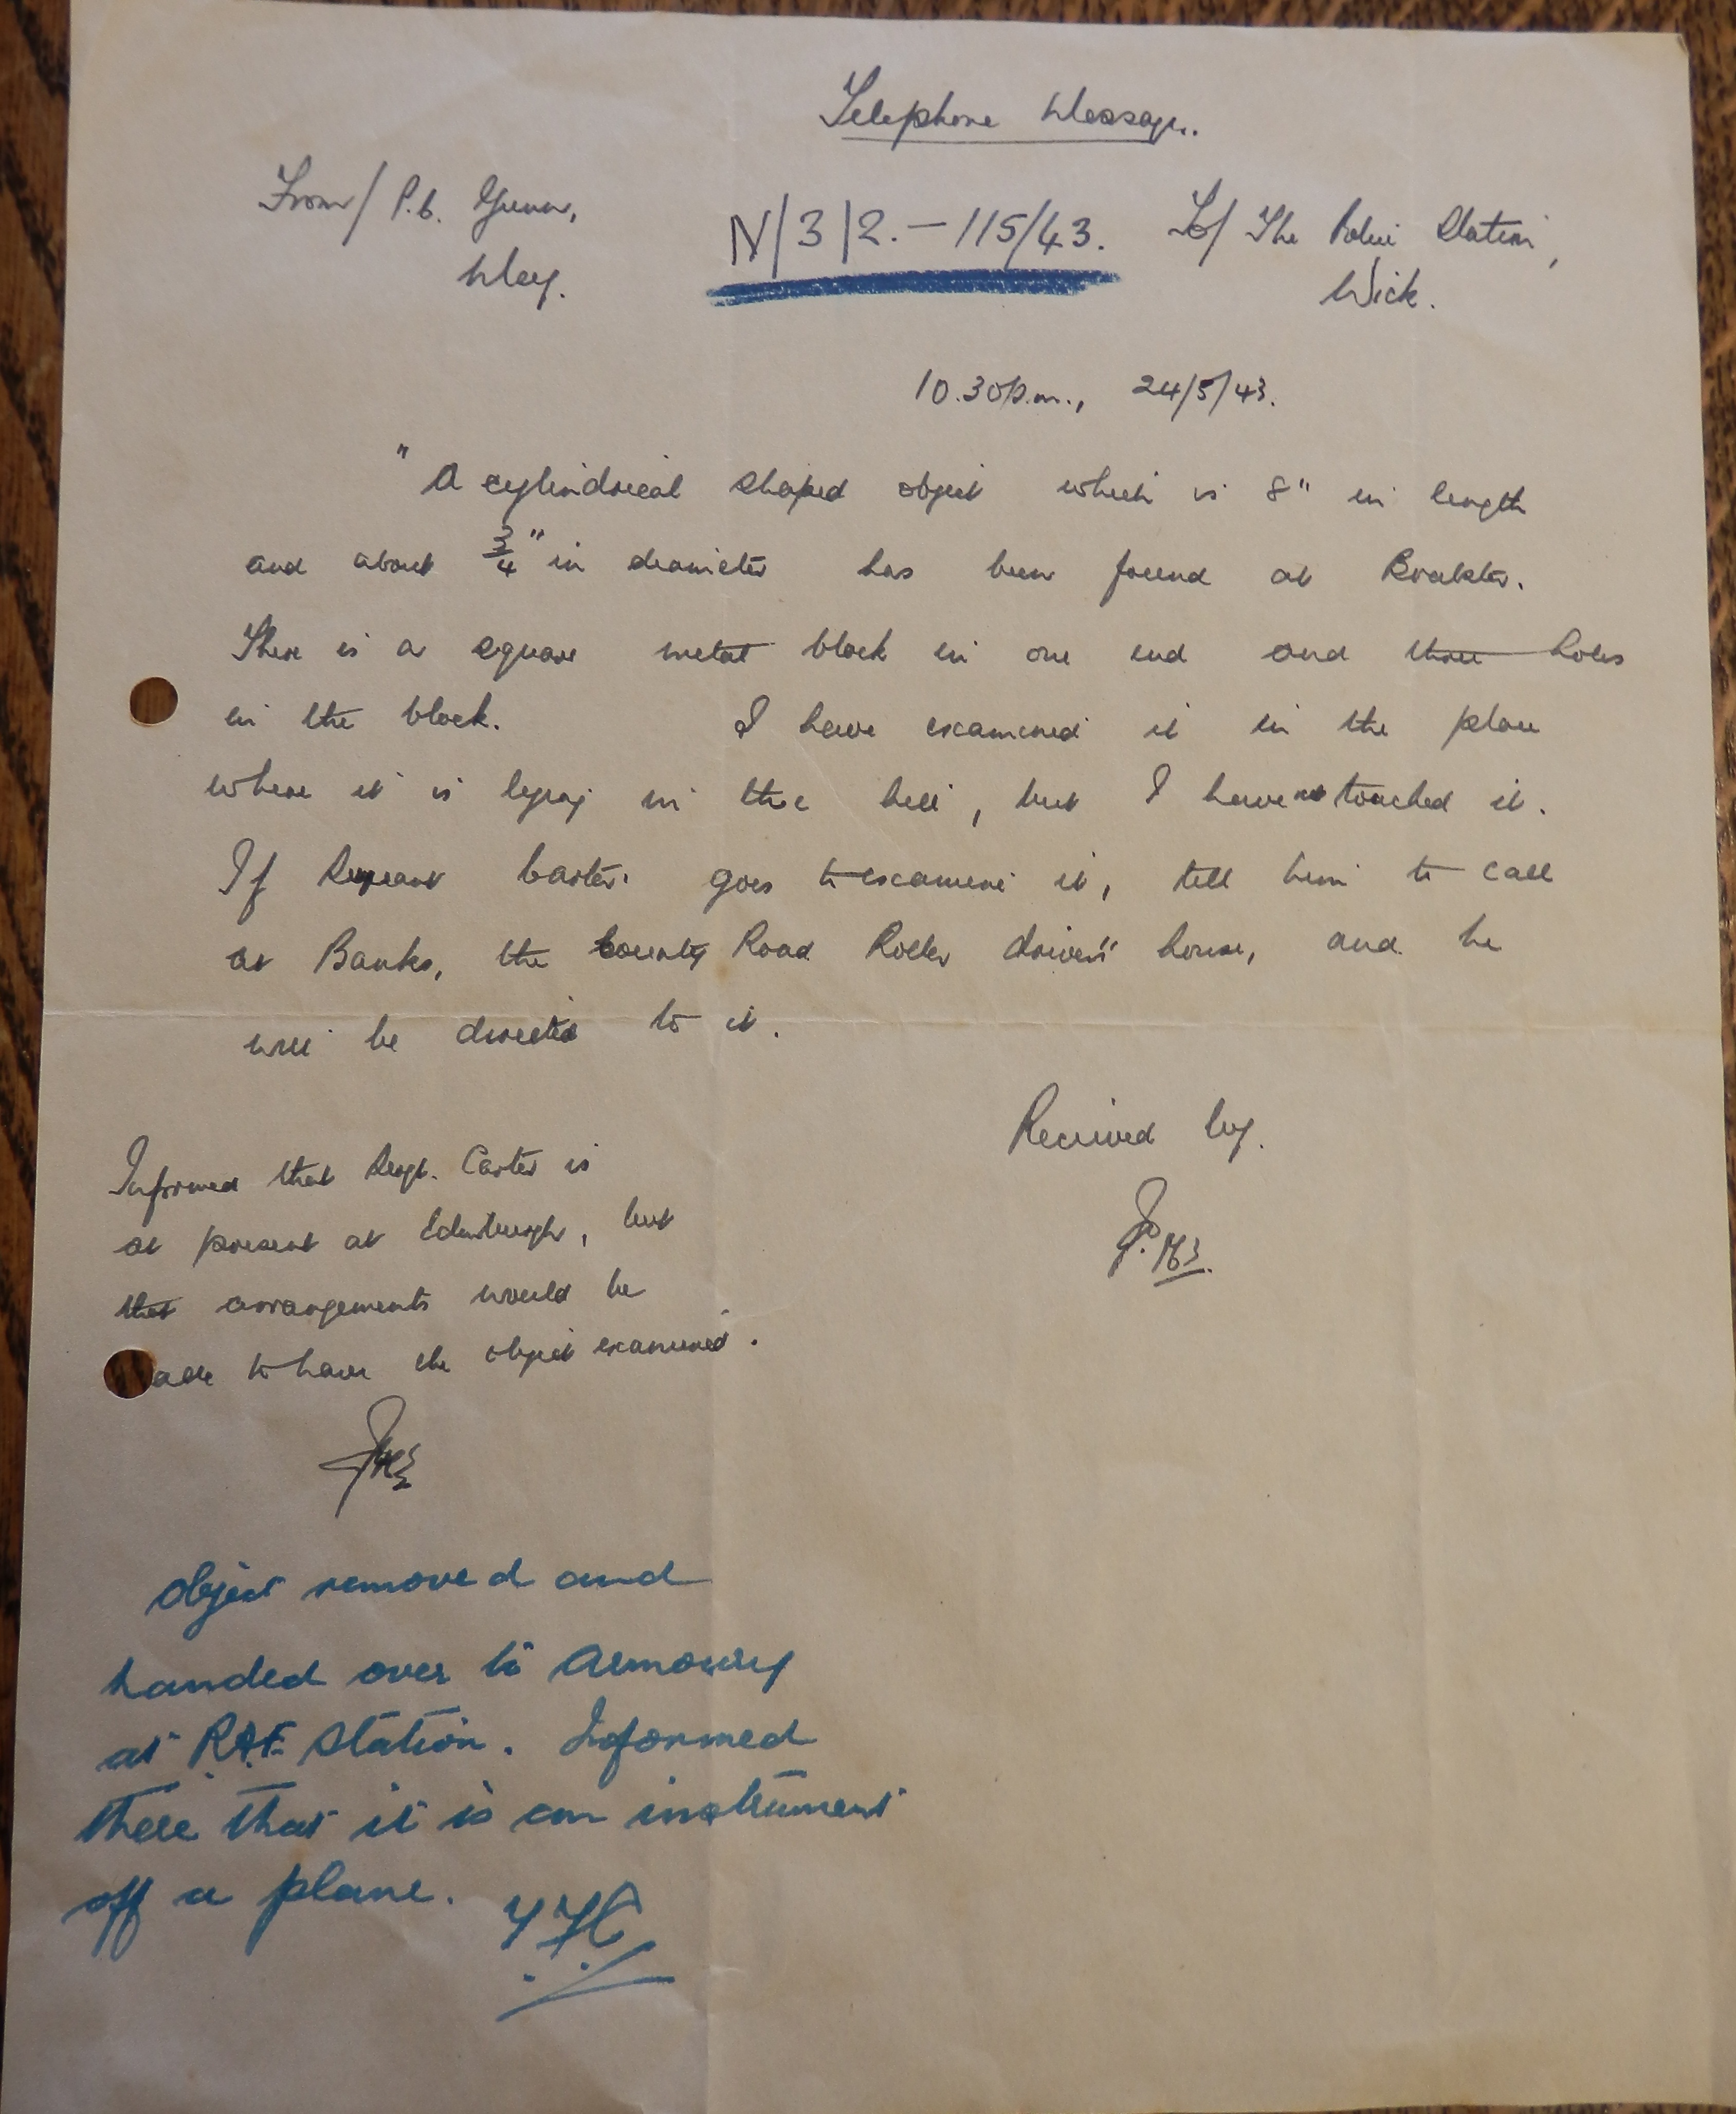 Telephone Message.
From/ P.C. Gunn,
Mey.
N/3/2.-115/43.
To/ The Police Station,
Wick.
10.30p.m., 24/5/43.
"A cylindrical shaped object which is 8" in length
and about 3/4" in diameter has been found at Brabster.
There is a square metal block in one end and three holes
in the block. I have examined it in the place
where it is lying in the hill, but I have not touched it.
If Sergeant Carter goes to examine it, tell him to call
at Banks, the County Road Roller driver's house, and he
will be directed to it.
Received by.
Informed that Sergt. Carter is
at present at Edinburgh, but
that arrangements would be
ade to have the object examined.
Object removed and
handed over to Armoury
at R.A.F. Station. Informed
there that it is an instrument
off a plane.